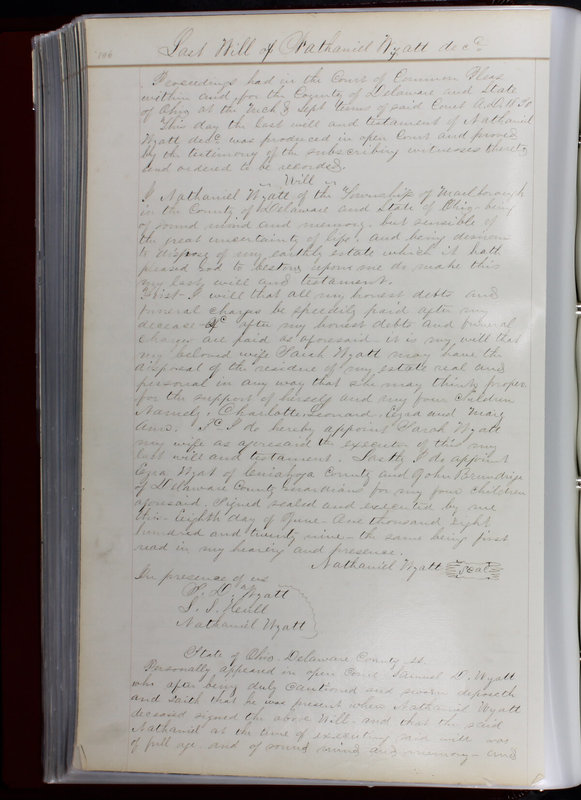 106
Last Will of Nathaniel Wyatt decd
Proceedings had in the Court of Common Pleas
within and for the County of Delaware and State
of Ohio at the Term of Sept terms of said Court A.D.
This day the last will and testament of Nathaniel
Wyatt decd was produced in open Court and proved
by the testimony of the subscribing witnesses thereto
and ordered to be recorded.
Will
I Nathaniel Wyatt of the Township of Marlborough
in the County of Delaware and State of Ohio being
of sound mind and memory. but sensible of
the great uncertainty of life. and being desirous
to dispose of my earthly estate which it hath
pleased God to bestow upon me do make this
my last will and testament.
First I will that all my honest debts and
funeral charges be speedily paid after my
decease & after my honest debts and funeral
charges are paid as aforesaid - it is my will that
my beloved wife Sarah Wyatt may have the
disposal of the residue of my estate real and
personal in any way that she may think proper
for the support of herself and my four children
Namely: Charlotte, Leonard, Ezra and Mary
Ann. I do hereby appoint Sarah Wyatt
my wife as aforesaid the executor of this my
last will and testament. Lastly I do appoint
Ezra Wyat of Cuiahoya County and John Brundrige
of Delaware County Guardians for my four children
aforesaid. Signed sealed and executed by me
this - Eighth day of June - One thousand eight
hundred and twenty nine - the same being first
read in my hearing and presence.
Nathaniel Wyatt Seal
In presence of us
S. D. Wyatt
Nathaniel Wyatt
State of Ohio Delaware County ss.
Personally appeared in open Court Samuel D. Wyatt
who after being duly cautioned and sworn deposeth
and saith that he was present when Nathaniel Wyatt
deceased signed the above Will. and that the said
Nathaniel at the time of executing said will was
of full age. and of sound mind and memory - and